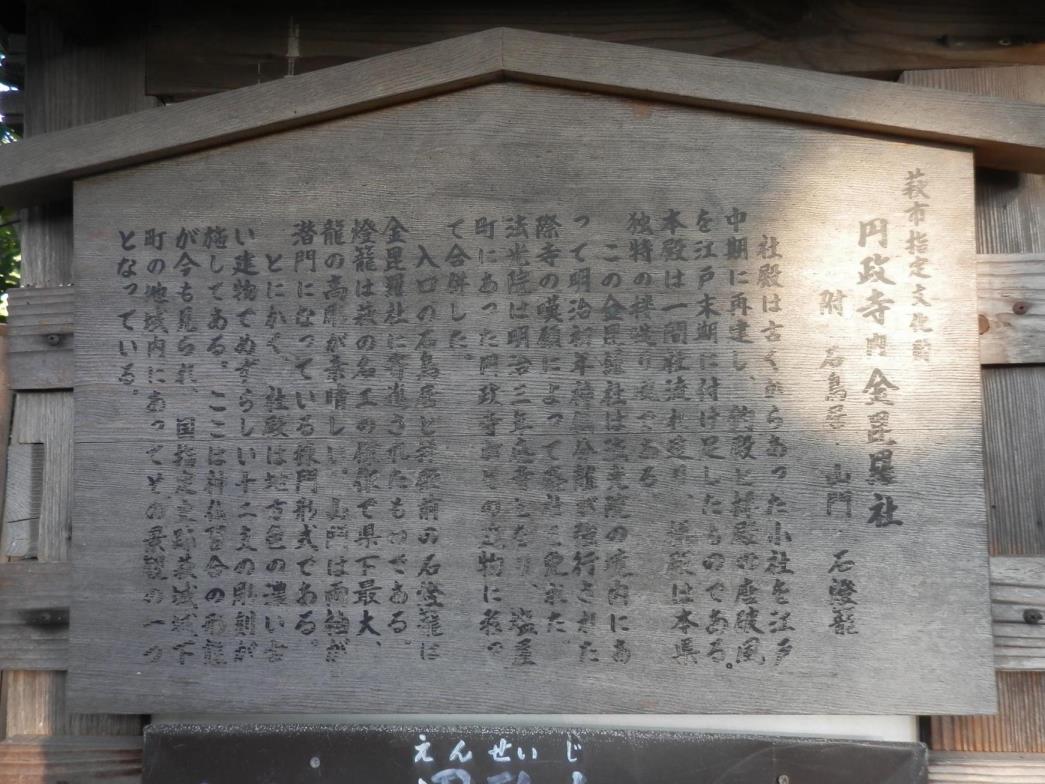 萩市指定文化財
円政寺内金毘羅社
附 石鳥居 山門 石燈籠
社殿は古くからあった小社を江戸
中期に再建し、釣殿と拝殿の唐破風
を江戸末期に付け足したものである。
本殿は一間社流れ造り、拝殿は本県
独特の楼造り なである。
この金毘羅社は法光院の境内にあ
って明治初年神仏分離が強行された
際寺の嘆願によって廃社を免れた。
法光院は明治三年廃寺となり、塩屋
町にあった円政寺がその建物に移っ
て合併した。
入口の石鳥居と拝殿前の石燈籠は
金毘羅社に寄進されたものである。
燈籠は萩の名工の作で県下最大、
龍の高彫が素晴しい。山門は両袖が
潜門になっている楼門形式である。
とにかく、社殿は地方色の濃い古
い建物でめずらしい十二支の彫刻が
施してある。ここは神仏習合の形態
が今も見られ、国指定史跡萩城城下
町の地域内にあってその景観の一つ
となっている。
えんせいじ